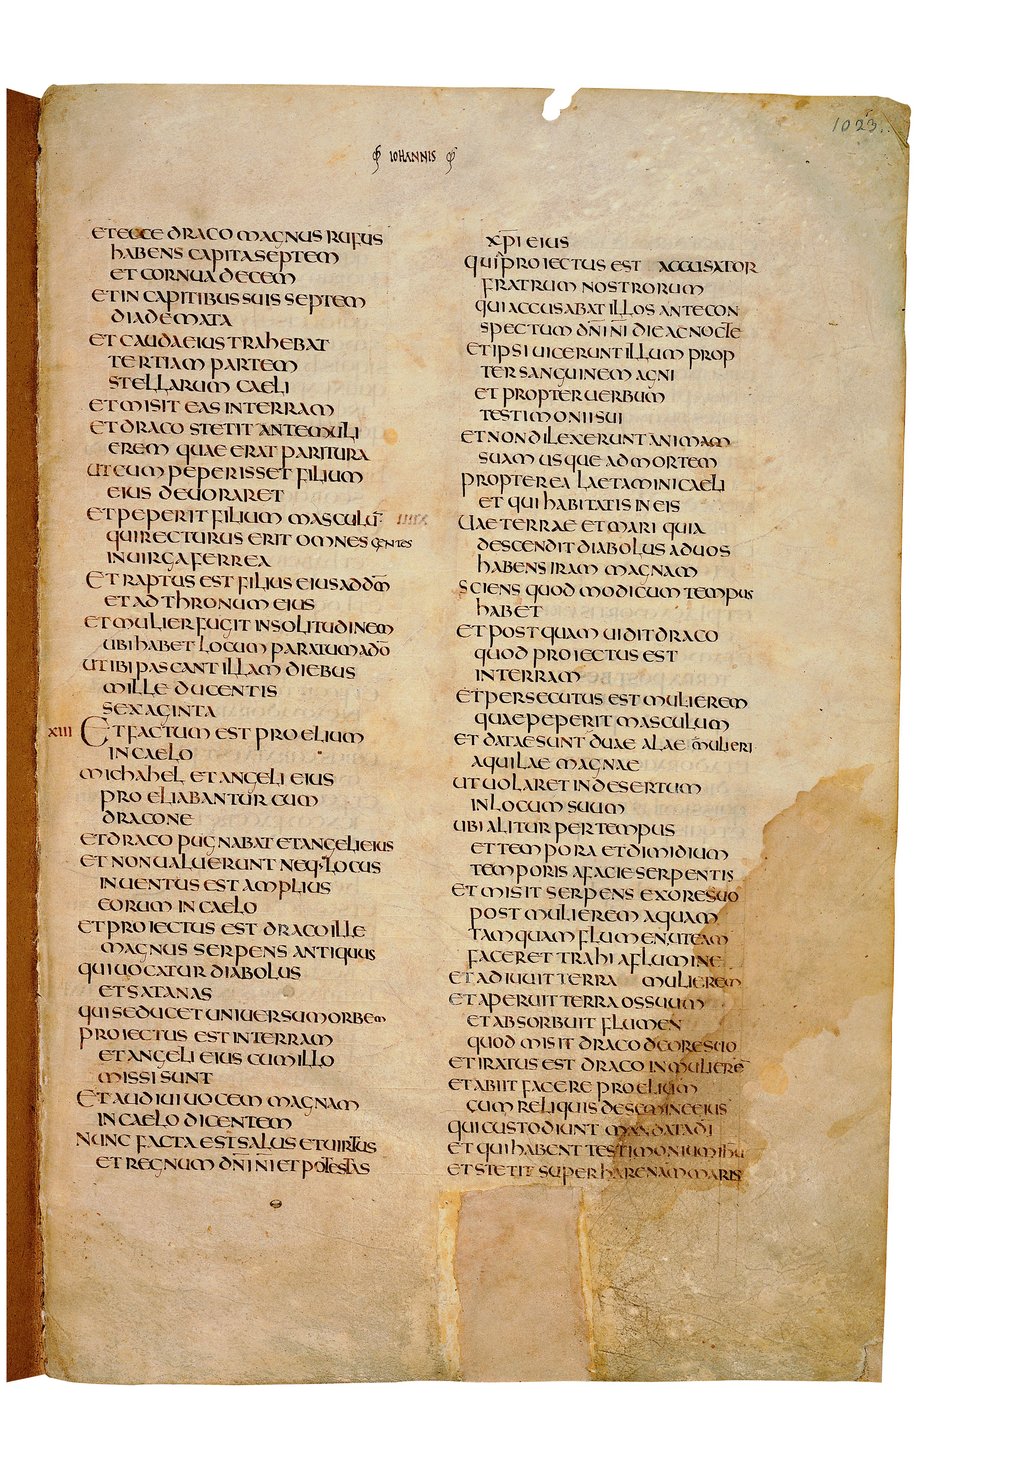 1023.
IOHANNIS
ET ECCE DRACO MAGNUS RUFUS
HABENS CAPITA SEPTEM
ET CORNUA DECEM
ET IN CAPITIBUS SUIS SEPTEM
DIADEMATA
ET CAUDA EIUS TRAHEBAT
TERTIAM PARTEM
STELLARUM CAELI
ET MISIT EAS IN TERRAM
ET DRACO STETIT ANTE MULI
EREM QUAE ERAT PARITURA
UT CUM PEPERISSET FILIUM
EIUS DEVORARET
ET PEPERIT FILIUM MASCULŪ
QUI RECTURUS ERIT OMNES GENTES
IN UIRGA FERREA
ET RAPTUS EST FILIUS EIUS AD DM̄
ET AD THRONUM EIUS
ET MULIER FUGIT IN SOLITUDINEM
UBI HABET LOCUM PARATUM A DŌ
UT IBI PASCANT ILLAM DIEBUS
MILLE DUCENTIS
SEXAGINTA
XIII ET FACTUM EST PROELIUM
IN CAELO
MICHAHEL ET ANGELI EIUS
PROELIABANTUR CUM
DRACONE
ET DRACO PUGNABAT ET ANGELI EIUS
ET NON UALUERUNT NEQ· LOCUS
INUENTUS EST AMPLIUS
EORUM IN CAELO
ET PROIECTUS EST DRACO ILLE
MAGNUS SERPENS ANTIQUUS
QUI UOCATUR DIABOLUS
ET SATANAS
QUI SEDUCET UNIUERSUM ORBEM
PROIECTUS EST IN TERRAM
ET ANGELI EIUS CUM ILLO
MISSI SUNT
ET AUDIUI UOCEM MAGNAM
IN CAELO DICENTEM
NUNC FACTA EST SALUS ET UIRTUS
ET REGNUM DN̄I N̄I ET POTESTAS
XP̄I EIUS
QUI PROIECTUS EST ACCUSATOR
FRATRUM NOSTRORUM
QUI ACCUSABAT ILLOS ANTE CON
SPECTUM DN̄I N̄I DIE AC NOCTE
ET IPSI UICERUNT ILLUM PROP
TER SANGUINEM AGNI
ET PROPTER UERBUM
TESTIMONII SUI
ET NON DILEXERUNT ANIMAM
SUAM USQUE AD MORTEM
PROPTEREA LAETAMINI CAELI
ET QUI HABITATIS IN EIS
UAE TERRAE ET MARI QUIA
DESCENDIT DIABOLUS AD UOS
HABENS IRAM MAGNAM
SCIENS QUOD MODICUM TEMPUS
HABET
ET POSTQUAM UIDIT DRACO
QUOD PROIECTUS EST
IN TERRAM
ET PERSECUTUS EST MULIEREM
QUAE PEPERIT MASCULUM
ET DATAE SUNT DUAE ALAE MULIERI
AQUILAE MAGNAE
UT UOLARET IN DESERTUM
IN LOCUM SUUM
UBI ALITUR PER TEMPUS
ET TEMPORA ET DIMIDIUM
TEMPORIS A FACIE SERPENTIS
ET MISIT SERPENS EX ORE SUO
POST MULIEREM AQUAM
TAMQUAM FLUMEN UT EAM
FACERET TRAHI A FLUMINE
ET ADIUUIT TERRA MULIEREM
ET APERUIT TERRA OS SUUM
ET ABSORBUIT FLUMEN
QUOD MISIT DRACO DE ORE SUO
ET IRATUS EST DRACO IN MULIERĒ
ET ABIIT FACERE PROELIUM
CUM RELIQUIS DE SEMINE EIUS
QUI CUSTODIUNT MANDATA DĪ
ET QUI HABENT TESTIMONIUM IHŪ
ET STETIT SUPER HARENAM MARIS